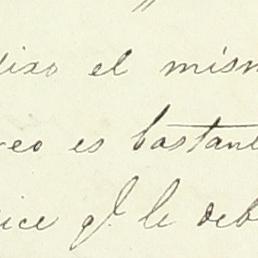 dixo el mism
eo es bastan
ice q.e le deb